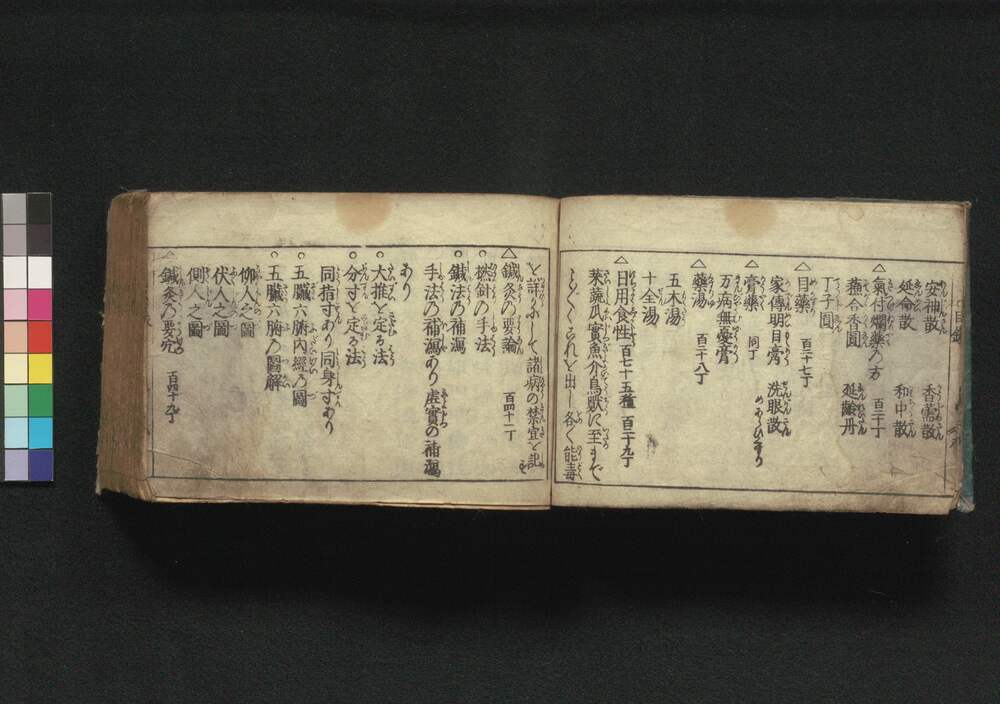 安神散 香薷散
延命散 和中散
△氣付爛藥の方 百三十丁
蘇合香圓 延齡丹
丁子圓
△目藥 百三十七丁
家傳明目膏 洗眼散
△膏藥 同丁
万病無憂膏
△藥湯 百三十八丁
五木湯
十全湯
△日用食性 百七十五種 百三十九丁
菜蔬瓜實魚介鳥獸に至まで
ことごとくこれを出し各〱能毒
を詳かにして諸病の禁宜を記す
△鍼灸の要論 百四十一丁
○撚針の手法
○鍼法の補瀉
手法の補瀉あり 虚實の補瀉
あり
○大推を定る法
○分寸を定る法
同指寸あり 同身寸あり
○五臟六腑内經乃圖
○五臟六腑乃圖解
仰人之圖
伏人之圖
側人之圖
△鍼灸乃要穴 百四十九丁